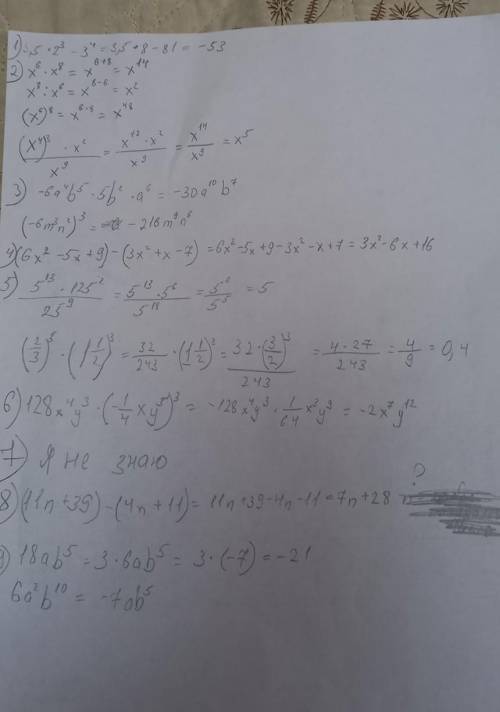 1) 3,5 · 2³ - 3⁴ = 3,5 + 8 - 81 = -53
2) x⁶ · x⁸ = x⁶⁺⁸ = x¹⁴
x⁸ : x⁶ = x⁸⁻⁶ = x²
(x⁶)⁸ = x⁶·⁸ = x⁴⁸
(x⁴)³ · x² / x⁹ = x¹² · x² / x⁹ = x¹⁴ / x⁹ = x⁵
3) -6a⁴b⁵ · 5b² · a⁶ = -30a¹⁰b⁷
(-6m³n²)³ = -216m⁹n⁶
4) (6x² - 5x + 9) - (3x² + x - 7) = 6x² - 5x + 9 - 3x² - x + 7 = 3x² - 6x + 16
5) 5¹³ · 125² / 25⁹ = 5¹³ · 5⁶ / 5¹⁸ = 5⁶ / 5⁵ = 5
(2/3)⁵ · (1 1/2)³ = 32/243 · (1 1/2)³ = 32 · (3/2)³ / 243 = 4 · 27 / 243 = 4/9 = 0,4
6) 128x⁴y³ · (-1/4 xy³)³ = -128x⁴y³ · 1/64 x³y⁹ = -2x⁷y¹²
7) Я не знаю
?
8) (11n + 39) - (4n + 11) = 11n + 39 - 4n - 11 = 7n + 28
9) 18ab⁵ = 3 · 6ab⁵ = 3 · (-7) = -21
6a²b¹⁰ = -7ab⁵